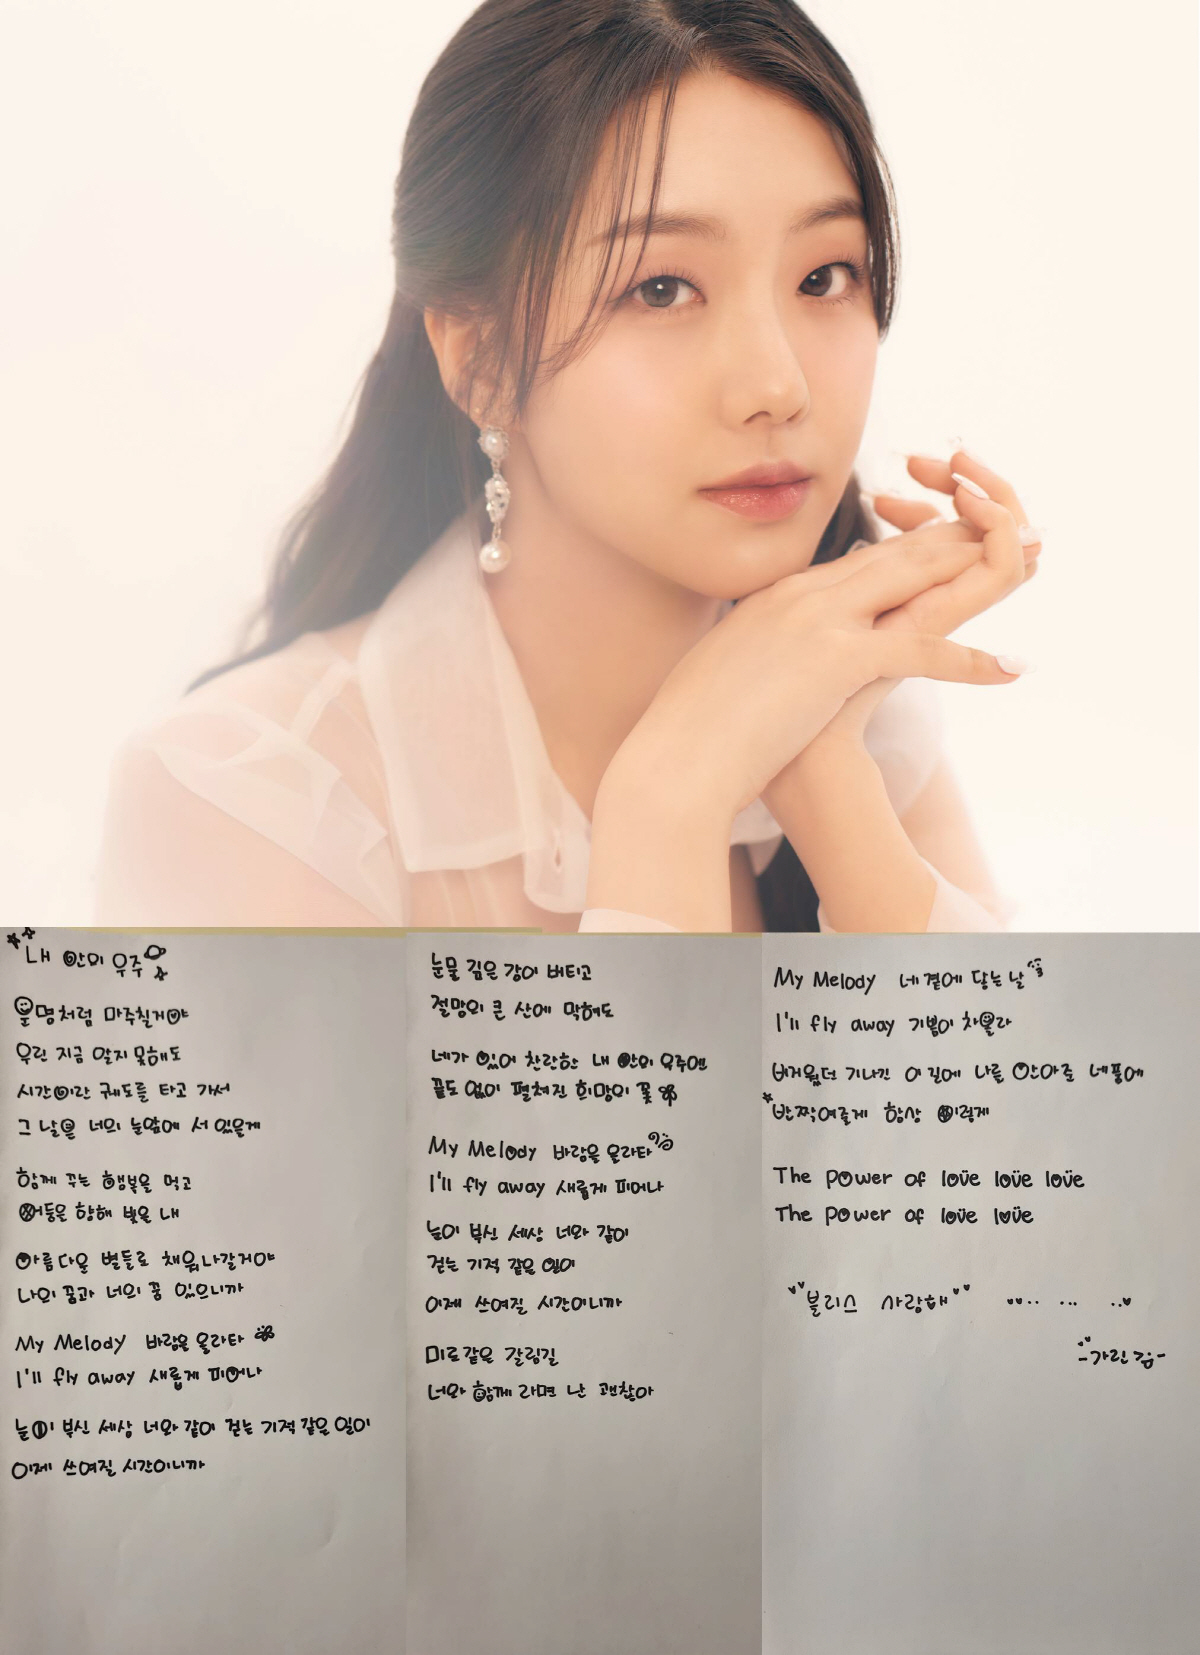 내 안의 우주
운명처럼 마주칠거야
우린 지금 알지 못해도
시간이란 궤도를 타고 가서
그 날은 너의 눈앞에 서 있을게
함께 꾸는 행복을 먹고
어둠은 향해 빛을 내
아름다운 별들로 채워나갈거야
나의 꿈과 너의 꿈 있으니까
My Melody 바람을 올라타
I'll fly away 새롭게 피어나
눈이 부신 세상 너와 같이 걷는 기적 같은 일이
이제 쓰여질 시간이니까
눈물 깊은 강이 버티고
절망의 큰 산에 막혀도
네가 있어 찬란한 내 안의 우주엔
끝도 없이 펼쳐진 희망의 꽃
My Melody 바람을 올라타
I'll fly away 새롭게 피어나
눈이 부신 세상 너와 같이
걷는 기적 같은 일이
이제 쓰여질 시간이니까
미로같은 갈림길
너와 함께 라면 난 괜찮아
My Melody 네 곁에 닿는 날
I'll fly away 기쁨이 차올라
버거웠던 기나긴 이 길에 나를 안아준 네 품에
반짝여줄게 항상 이렇게
The power of love love love
The power of love love
블리스 사랑해
-가린 김-